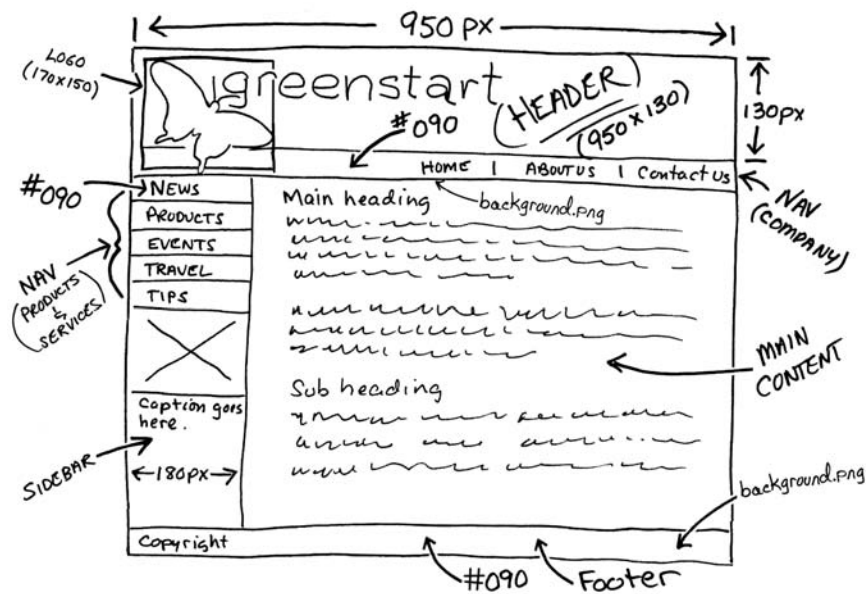 950 px
LOGO
(170x150)
greenstart
(HEADER)
(950 x 130)
130px
#090
HOME | ABOUT US | Contact Us
NAV
(COMPANY)
#090
NEWS
PRODUCTS
EVENTS
TRAVEL
TIPS
NAV
(PRODUCTS
&
SERVICES)
Main heading
background.png
MAIN
CONTENT
Sub heading
Caption goes
here.
SIDEBAR
180px
background.png
Copyright
#090
Footer